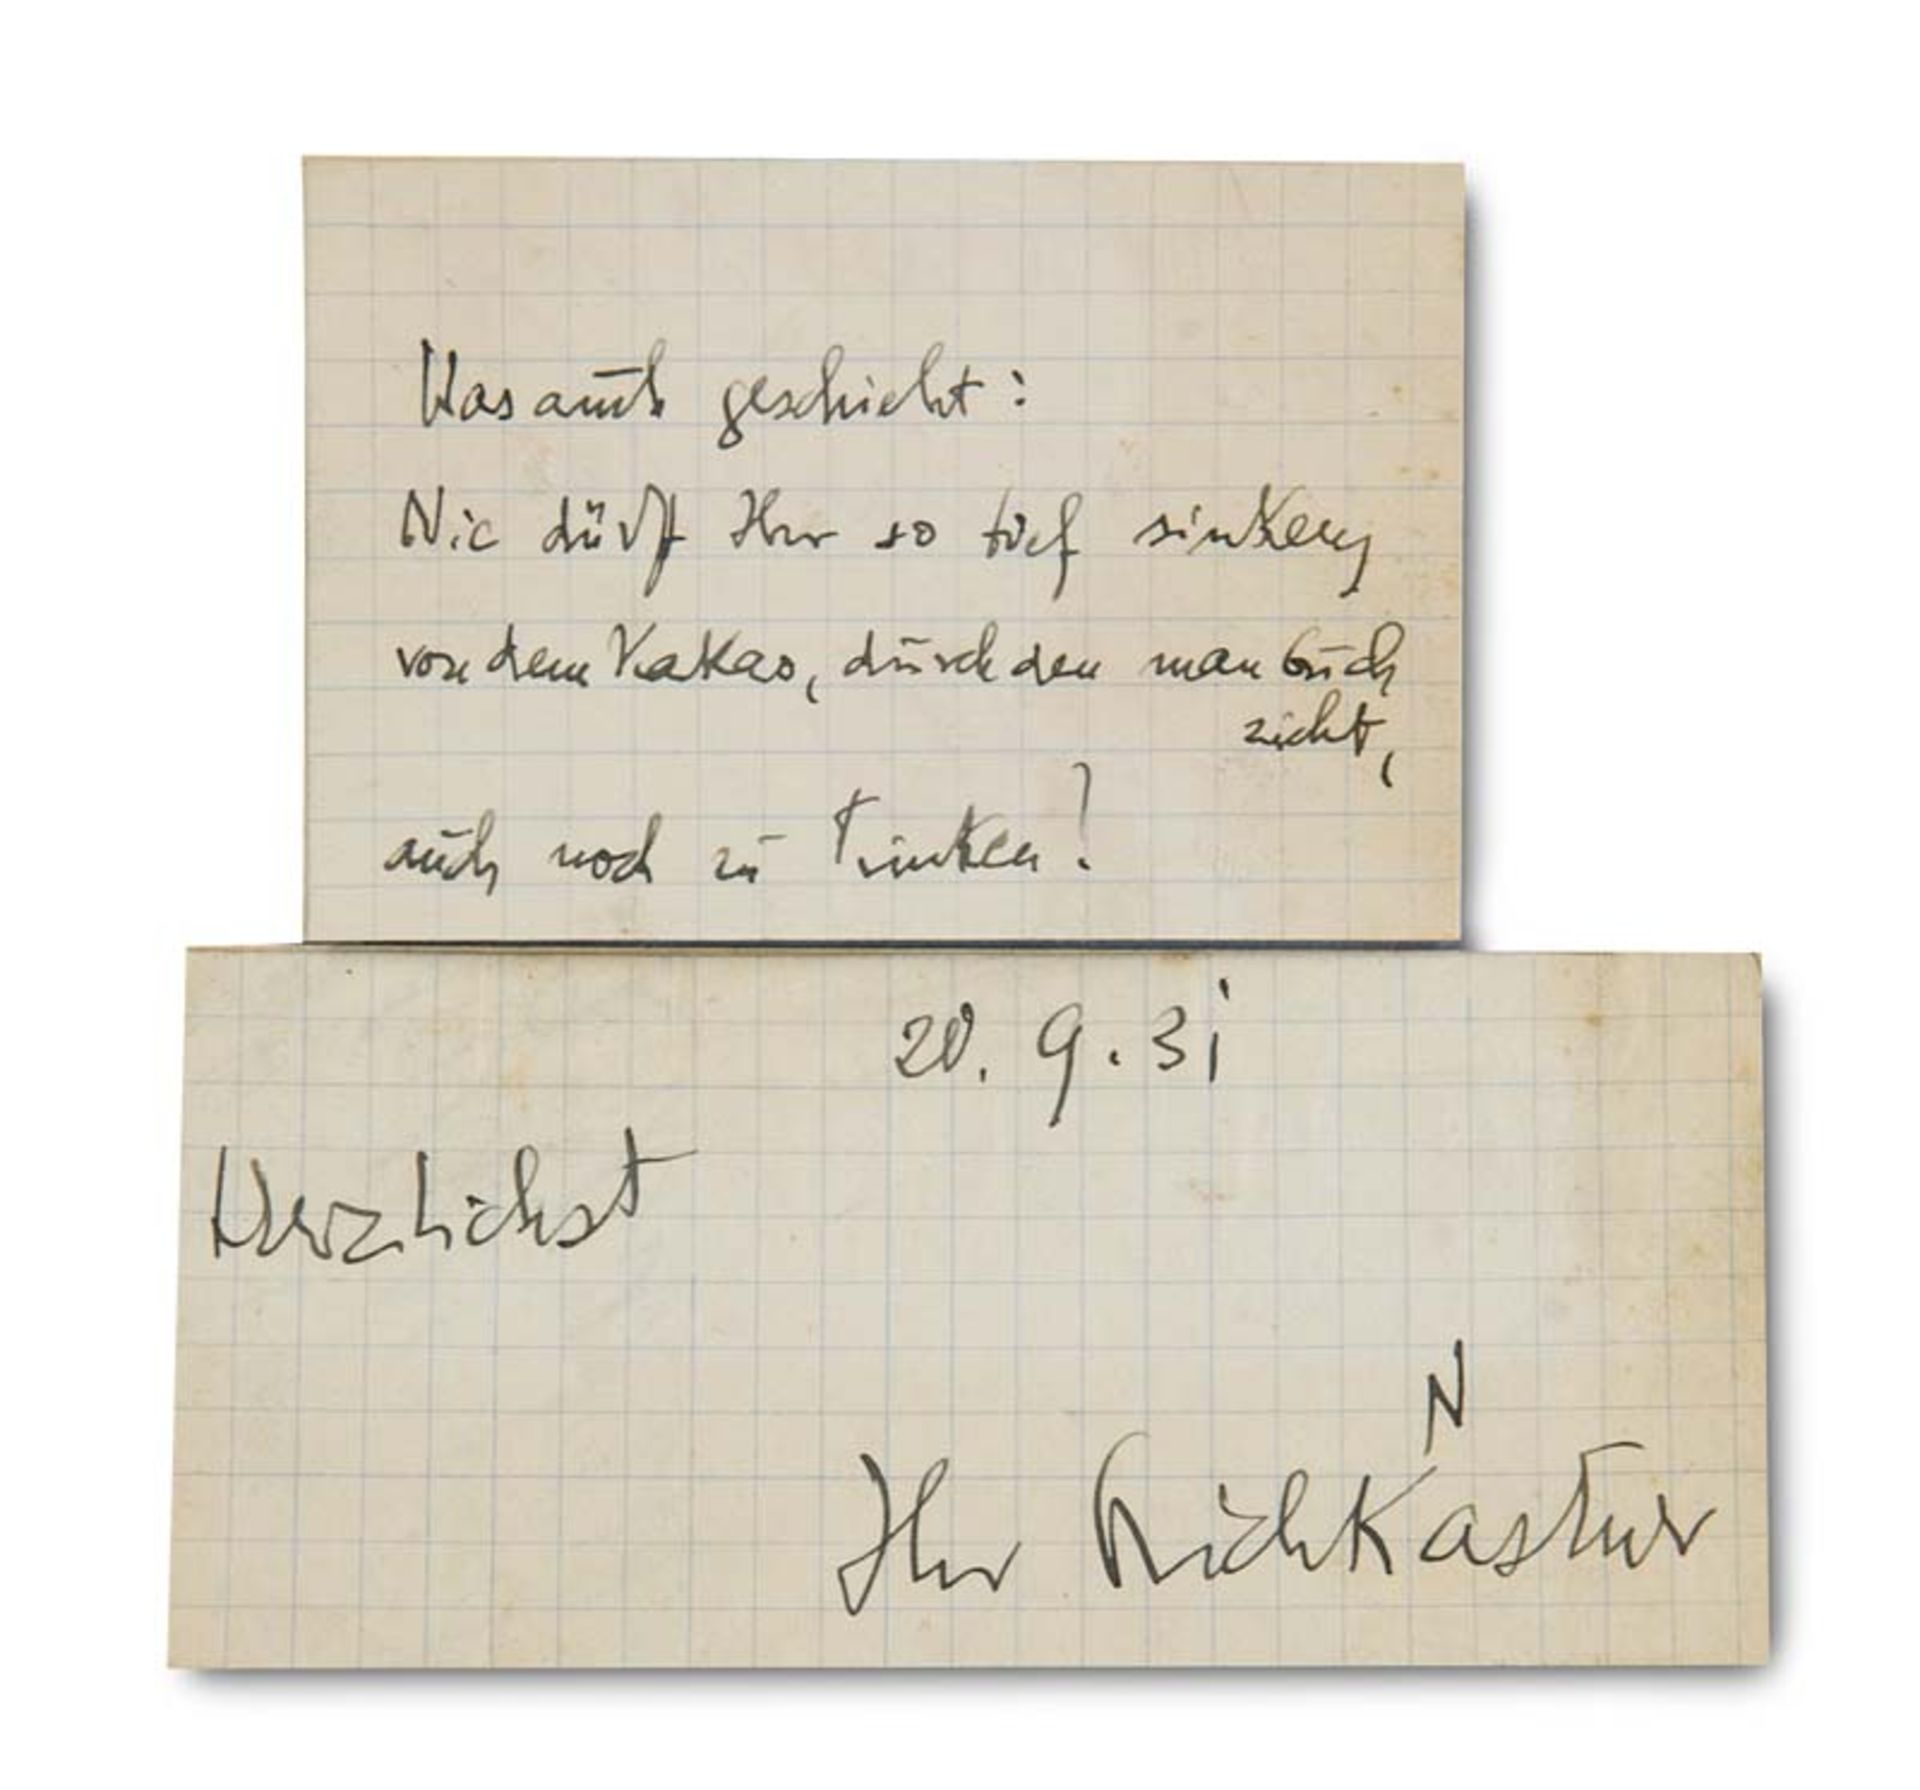 Was auch geschieht:
Nie dürft Ihr so tief sinken,
von dem Kakao, durch den man Euch
zieht,
auch noch zu trinken!
20. 9. 31
Herzlichst
Ihr Erich Kästner